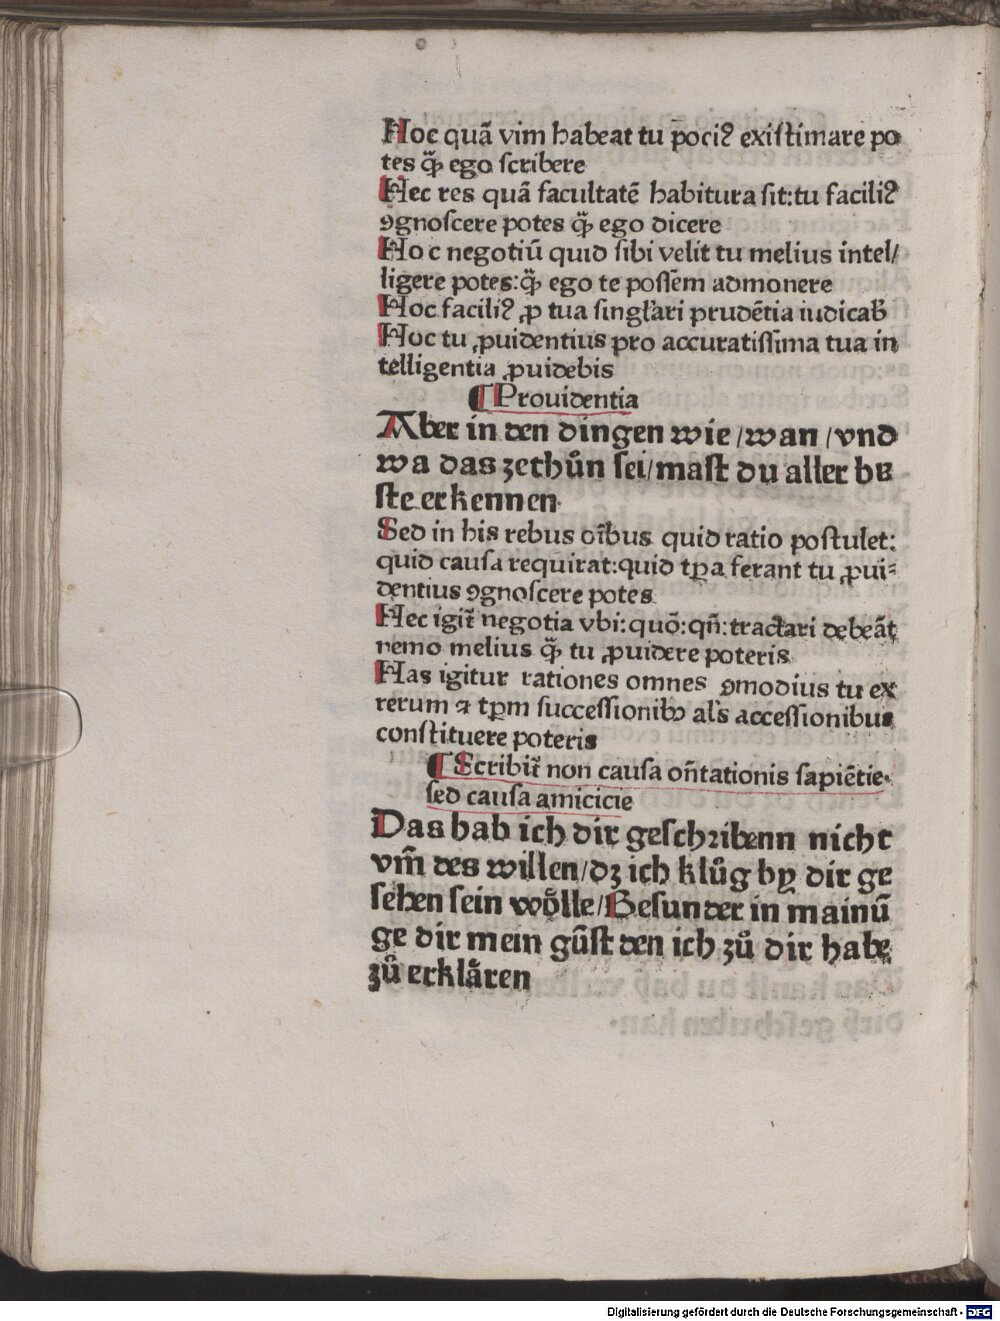 Hoc quã vim habeat tu pociꝰ exiſtimare po
tes q̃ꝫ ego ſcribere
Hec res quã facultatẽ habitura ſit:tu faciliꝰ
ꝯgnoſcere potes q̃ꝫ ego dicere
Hoc negotiũ quid ſibi velit tu melius intel/
ligere potes:q̃ꝫ ego te poſſem admonere
Hoc faciliꝰ ꝓ tua ſingl'ari prudẽtia iudicab'
Hoc tu ꝓuidentius pro accuratiſſima tua in
telligentia ꝓuidebis
¶ Prouidentia
Aber in den dingen wie/wan/vnd
wa das zethůn ſei/maſt du aller be
ſte erkennen
Sed in his rebus oĩbus quid ratio poſtulet:
quid cauſa requirat:quid tp̃a ferant tu ꝓui⸗
dentius ꝯgnoſcere potes
Hec igit̃ negotia vbi:quõ:qñ:tractari debeãt
nemo melius q̃ꝫ tu ꝓuidere poteris
Has igitur rationes omnes ꝯmodius tu ex
rerum ⁊ tp̃m ſucceſſionibꝰ al's acceſſionibus
conſtituere poteris
¶ Scribit̃ non cauſa oñtationis ſapiẽtie
ſed cauſa amicicie
Das hab ich dir geſchꝛibenn nicht
vm̃ des willen/dꝫ ich klůg by dir ge
ſehen ſein woͤlle/Beſunder in mainũ
ge dir mein gũſt den ich zů dir habe
zů erklaͤren
Digitalisierung gefördert durch die Deutsche Forschungsgemeinschaft - DFG